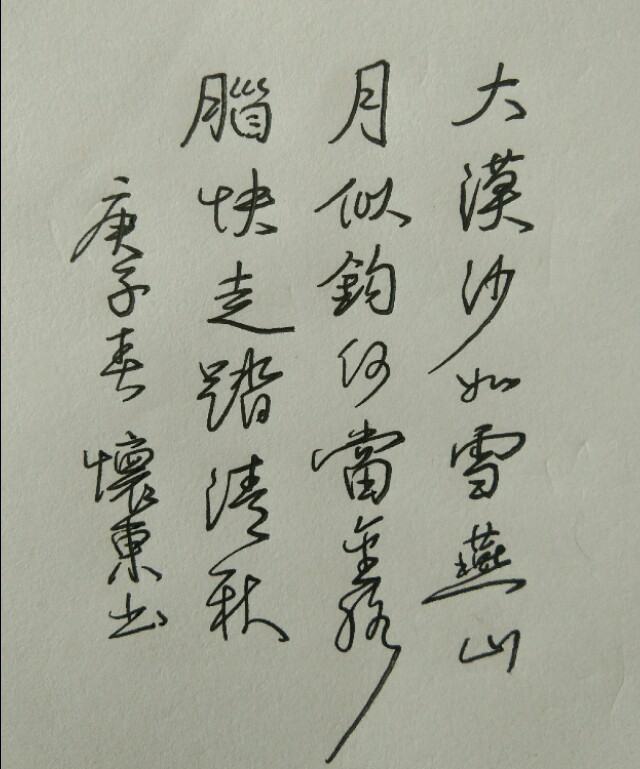 大漠沙如雪燕山
月似鈎何當金絡
腦快走踏清秋
庚子春 懷東书